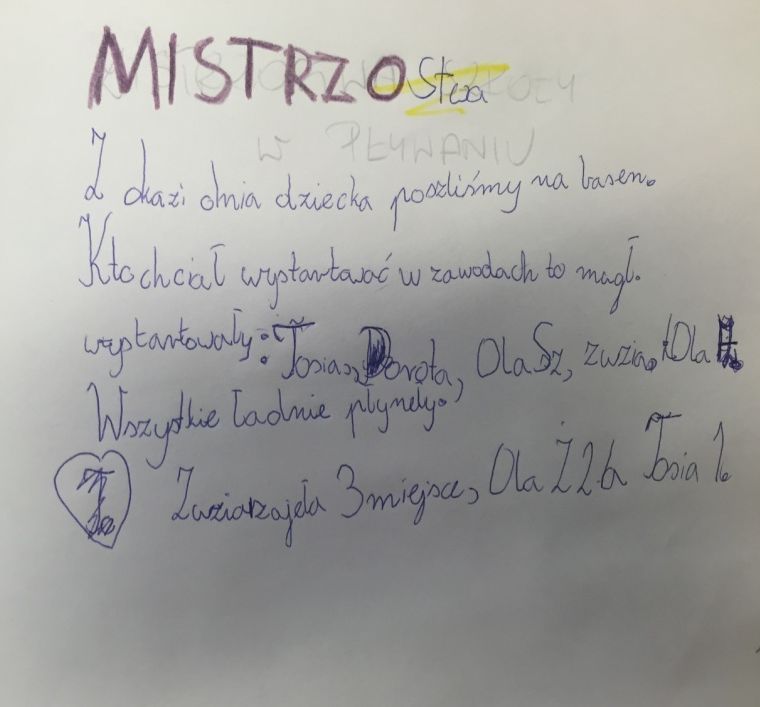 MISTRZOStwa
W PŁYWANIU
Z okazi dnia dziecka poszliśmy na basen.
Kto chciał wystartować w zawodach to magł.
wystartowały: Tosia, Dorota, Ola Sz, zuzia, Ola
Wszystkie ładnie płynęły.
Zuzia zajęła 3 miejsce, Ola Ż 2 a Tosia 1.